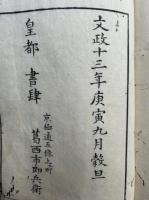 文政十三年庚寅九月穀旦
京極通五條上町
皇都 書肆 葛西市郎兵衛